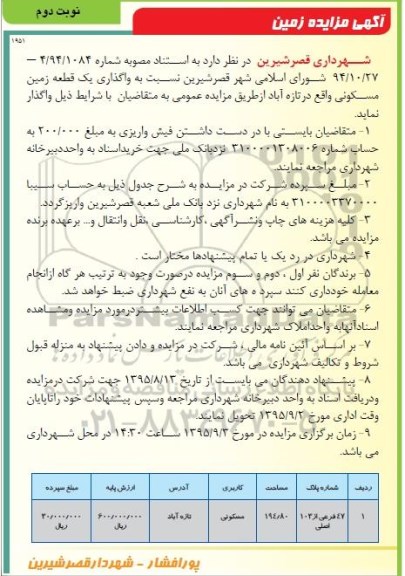 نوبت دوم
آگهی مزایده زمین
۱۹۵۱
شـــهرداری قصرشیرین در نظر دارد به اسـتناد مصوبه شماره ۴/۹۴/۱۰۸۴ –
۹۴/۱۰/۲۷ شـورای اسلامی شهر قصرشیرین نسـبت به واگذاری یک قطعه زمین
مسـکونی واقع درتازه آباد ازطریق مزایده عمومی به متقاضیان با شرایط ذیل واگذار
نماید.
۱- متقاضیان بایستـی با در دسـت داشتـن فیش واریزی به مبلغ ۲۰۰/۰۰۰ به
حساب شماره ۳۱۰۰۰۰۱۳۰۸۰۰۶ نزدبانک ملی جهت خریداسناد به واحددبیرخانه
شهرداری مراجعه نمایند.
۲- مبلـغ سـپرده شـرکت در مزایـده به شـرح جدول ذیل به حسـاب سـیبا
۳۱۰۰۰۰۳۳۷۰۰۰۰ به نام شهرداری نزد بانک ملی شعبه قصرشیرین واریزگردد.
۳- کلیه هزینه های چاپ ونشـرآگهی ،کارشناسـی ،نقل وانتقال و... برعهده برنده
مزایده می باشد.
۴- شهرداری در رد یک یا تمام پیشنهادها مختار است .
۵- برندگان نفر اول ، دوم و سـوم مزایده درصورت وجود به ترتیب هر گاه ازانجام
معامله خودداری کنند سپرد ه های آنان به نفع شهرداری ضبط خواهد شد.
۶- متقاضیان می توانند جهت کسـب اطلاعات بیشـتردرمورد مزایده ومشـاهده
اسنادآنهابه واحداملاک شهرداری مراجعه نمایند.
۷- بر اسـاس آئین نامه مالی ، شـرکت در مزایده و دادن پیشنهاد به منزله قبول
شروط و تکالیف شهرداری می باشد.
۸- پیشـنهاد دهندگان می بایسـت از تاریخ ۱۳۹۵/۸/۱۳ جهت شرکت درمزایده
ودریافت اسناد به واحد دبیرخانه شهرداری مراجعه وسپس پیشنهادات خود راتاپایان
وقت اداری مورخ ۱۳۹۵/۹/۲ تحویل نمایند.
۹- زمان برگزاری مزایده در مورخ ۱۳۹۵/۹/۳ سـاعت ۱۴:۳۰ در محل شـهرداری
می باشد.
ردیف شماره پلاک مساحت کاربری آدرس ارزش پایه مبلغ سپرده
۱ ۴۷ فرعی از۱۰۳ اصلی ۱۹۴/۸۰ مسکونی تازه آباد ۶۰۰/۰۰۰/۰۰۰ ریال ۳۰/۰۰۰/۰۰۰ ریال
پورافشار - شهردارقصرشیرین